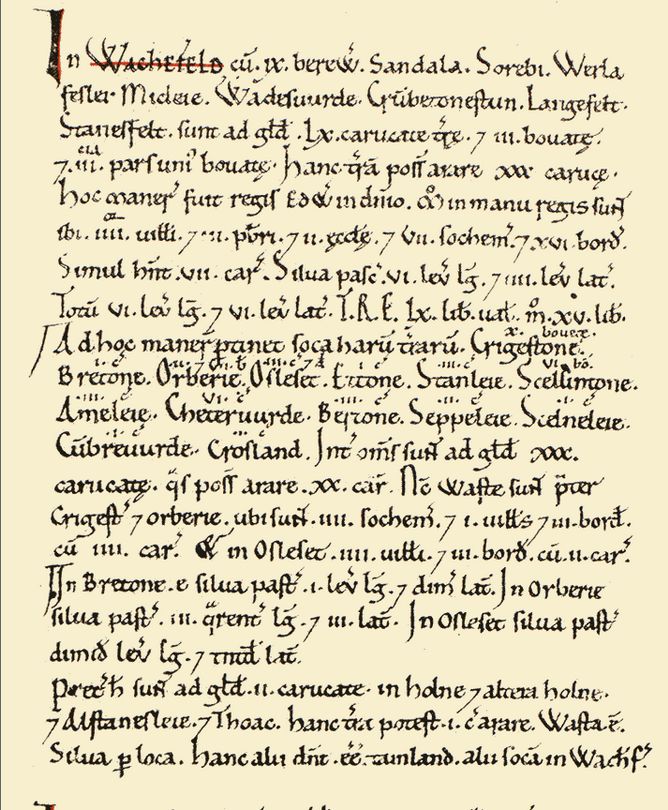 In Wachefeld cū .ix. berew̃. Sandala. Sorebi. Werla
fesler Micleie. Wadesuurde. Crūbetonestun. Langefelt.
Stanesfelt. sunt ad gl̃d .lx. carucatę trę. ⁊ iii. bouatę.
⁊ .iii. pars uni᷒ bouatę. Hanc trā poss̃ arare xxx carucę.
hoc maner̃ fuit regis Edw̃ in dnīo. m̊ in manu regis sun̄t
ibi .iiii. uilli. ⁊ iii. pb̃ri. ⁊ ii. ęcclę. ⁊ vii. sochem̃. ⁊ xvi. bord̃.
Simul hn̄t .vii. car̃. Silua pasc̃ .vi. leũ lḡ. ⁊ iiii. leũ lat̃.
Totū vi. leũ lḡ. ⁊ vi. leũ lat̃. T.R.E. lx. lib̃. ual̃. m̊ .xv. lib̃.
Ad hoc maner̃ ptinet soca harū trarū. Crigestone.
Bretone. Orberie. Osleset. Ettone. Stanleie. Scellintone.
Ameleie. Cheteruurde. Bertone. Seppeleie. Scelneleie.
Cūbreuurde. Crosland. Int̃ om̃s sun̄t ad gl̃d xxx.
carucatę. q̃s poss̃ arare .xx. car̃. Nc̄ waste sun̄t p̃ter
Crigest̃ ⁊ orberie. ubi sun̄t .iiii. sochem̃. ⁊ i. uill̃s ⁊ iii. bord̃.
cū iiii. car̃. & in Osleset .iiii. uilli. ⁊ iii. bord̃. cū .ii. car̃.
In Bretone. e silua past̃ .i. leũ lḡ. ⁊ dim̃ lat̃. In Orberie
silua past̃. iii. q̃rent̃ lḡ. ⁊ iii. lat̃. In Osleset silua past̃
dimid̃ leũ lḡ. ⁊ tn̄tđ lat̃.
Pret̃ h̃ sun̄t ad gl̃d .ii. carucatę. in holne ⁊ altera holne.
⁊ Alstanesleie. ⁊ Thoac. hanc trā potest .i. c̃ arare. Wasta ē.
Silua p loca. Hanc alii dn̄t .ēē. tainland. alii socā in Wachf̃.